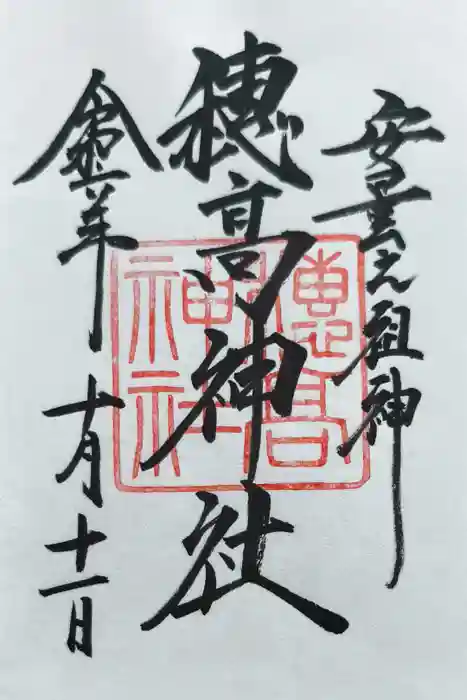 安曇之祖神
穂高神社
年 十月十一日
穂高
神社